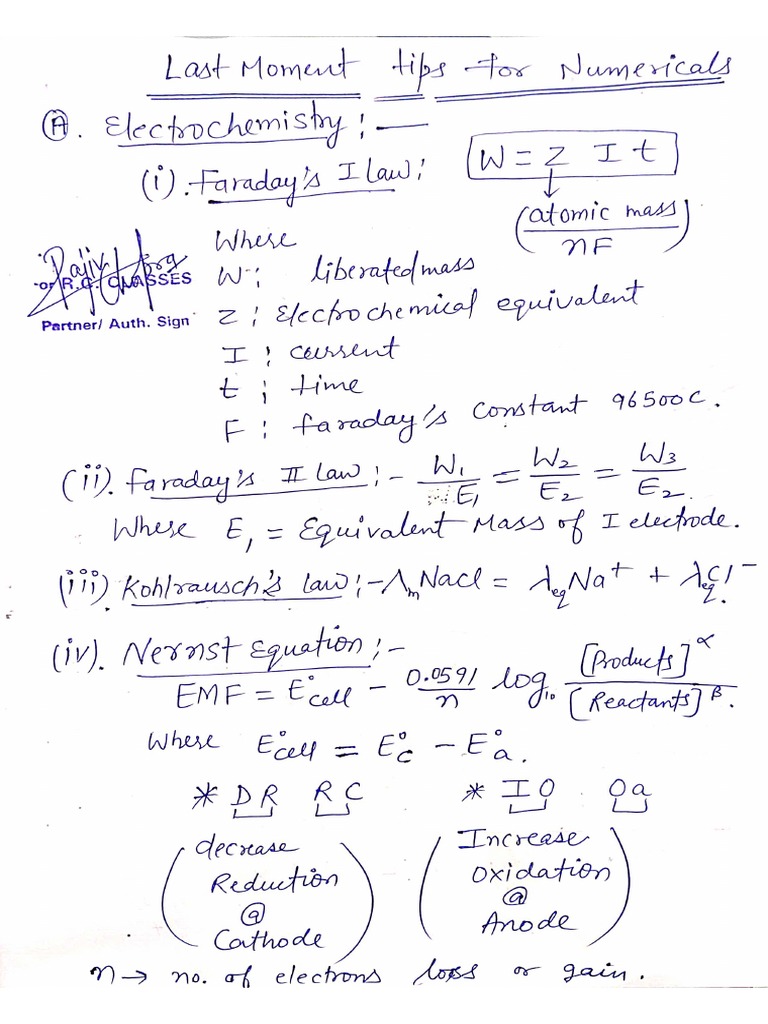 Last Moment tips for Numericals
(A). Electrochemistry:—
(i). Faraday's I law:
W = Z I t
(atomic mass / nF)
Where
W: liberated mass
Z: Electrochemical equivalent
I: current
t: time
F: faraday's constant 96500C.
or R.G. CLASSES
Partner/ Auth. Sign
(ii). Faraday's II law:- W1/E1 = W2/E2 = W3/E2
Where E1 = Equivalent Mass of I electrode.
(iii) Kohlrausch's law:- ΛmNaCl = λeqNa+ + λeqCl-.
(iv). Nernst Equation:-
EMF = E°cell - 0.0591/n log10 [Products]^α/[Reactants]^β.
Where E°cell = E°c - E°a.
* DR RC * IO Oa
(decrease Reduction @ Cathode)
(Increase Oxidation @ Anode)
n → no. of electrons loss or gain.